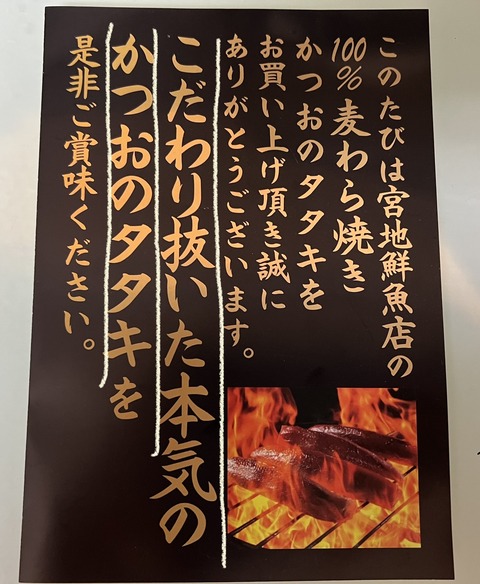 このたびは宮地鮮魚店の
100%麦わら焼き
かつおのタタキを
お買い上げ頂き誠に
ありがとうございます。
こだわり抜いた本気の
かつおのタタキを
是非ご賞味ください。